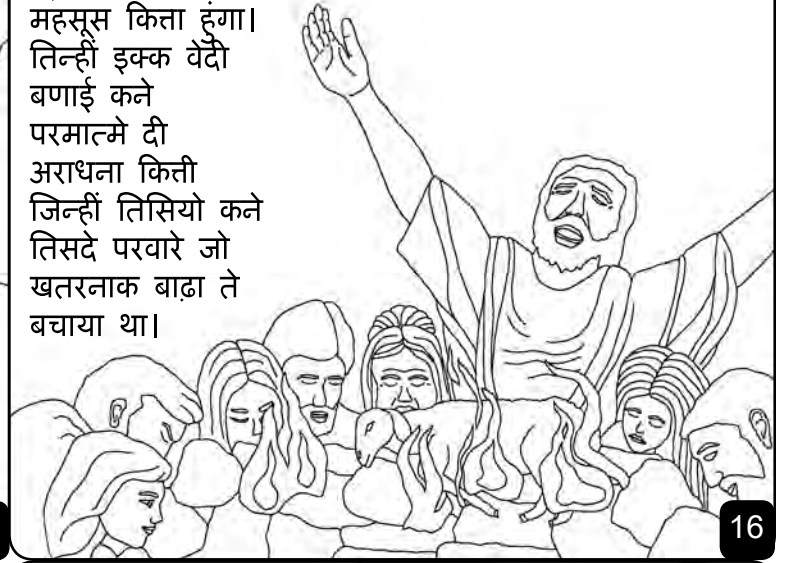 महसूस कित्ता हुंगा।
तिन्हीं इक्क वेदी
बणाई कने
परमात्मे दी
अराधना कित्ती
जिन्हीं तिसियो कने
तिसदे परवारे जो
खतरनाक बाढ़ा ते
बचाया था।
16